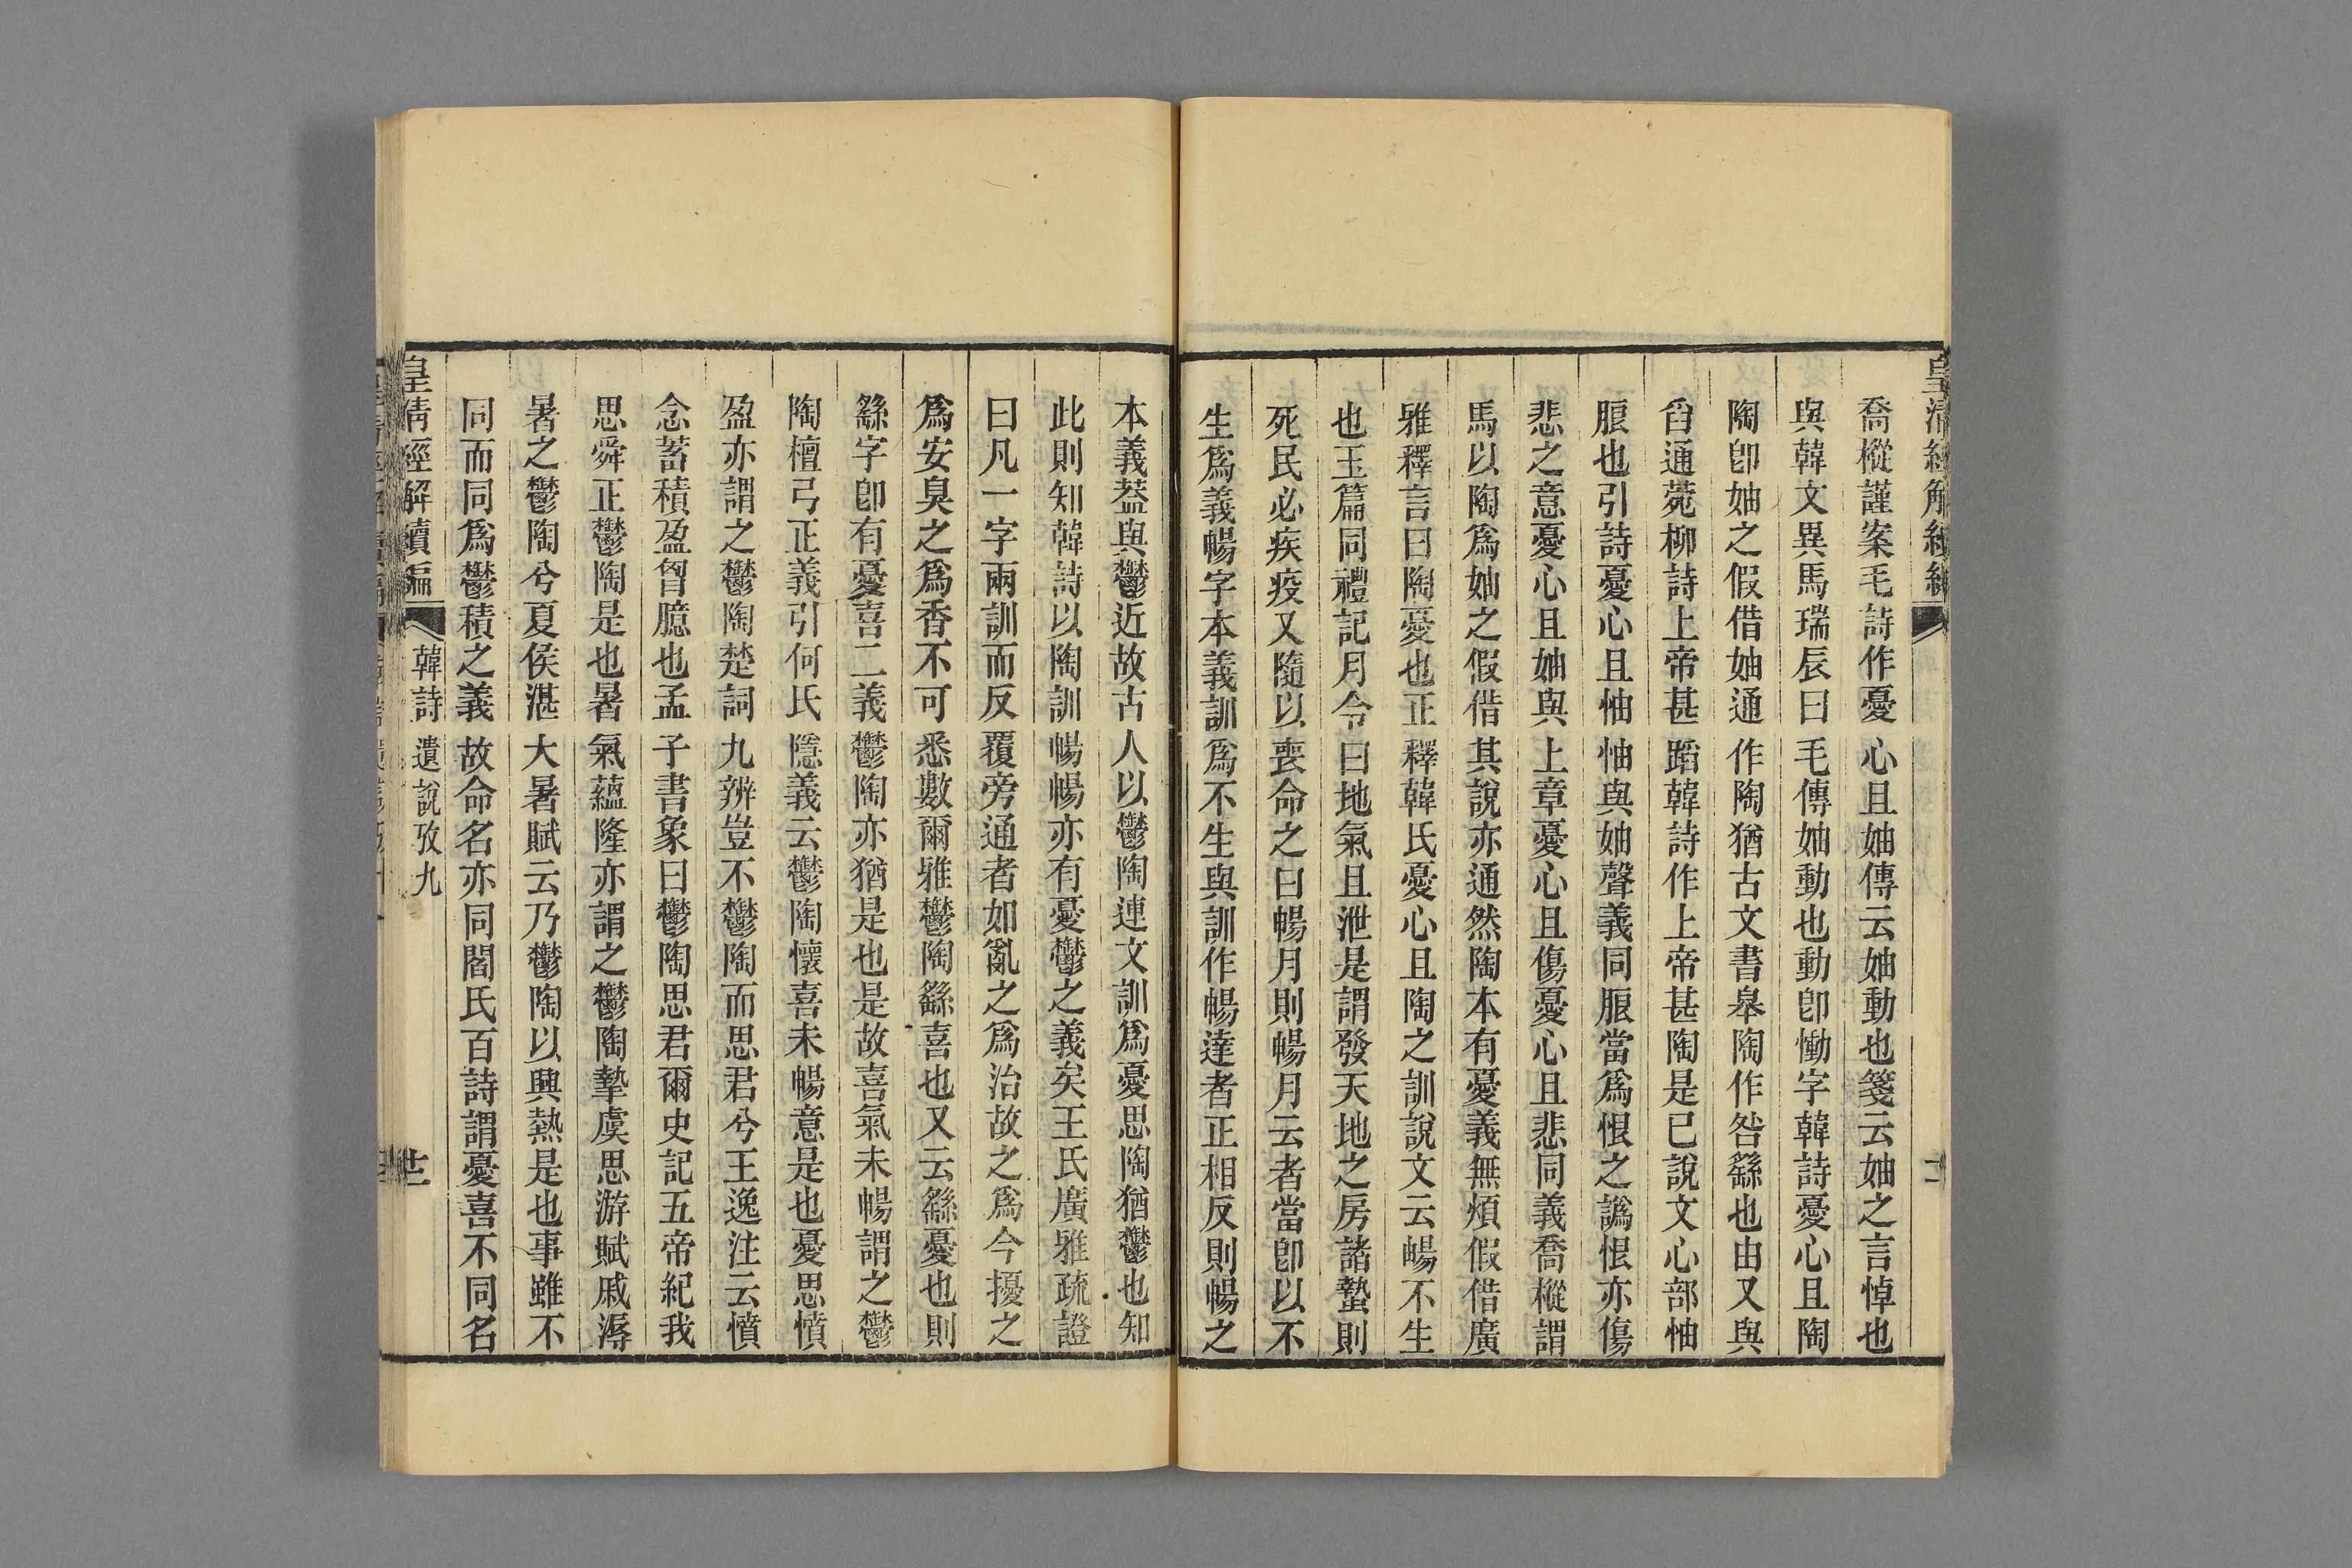 喬樅謹案毛詩作憂心且妯傳云妯動也箋云妯之言悼也
與韓文異馬瑞辰曰毛傳妯動也動卽慟字韓詩憂心且陶
陶卽妯之假借妯通作陶猶古文書皋陶作咎繇也由又與
舀通菀柳詩上帝甚蹈韓詩作上帝甚陶是已說文心部怞
朖也引詩憂心且怞怞與妯聲義同朖當爲恨之譌恨亦傷
悲之意憂心且妯與上章憂心且傷憂心且悲同義喬樅謂
馬以陶爲妯之假借其說亦通然陶本有憂義無煩假借廣
雅釋言曰陶憂也正釋韓氏憂心且陶之訓說文云暢不生
也玉篇同禮記月令曰地氣且泄是謂發天地之房諸蟄則
死民必疾疫又隨以喪命之曰暢月則暢月云者當卽以不
生爲義暢字本義訓爲不生與訓作暢達者正相反則暢之
本義葢與鬱近故古人以鬱陶連文訓爲憂思陶猶鬱也知
此則知韓詩以陶訓暢暢亦有憂鬱之義矣王氏廣雅疏證
曰凡一字兩訓而反覆旁通者如亂之爲治故之爲今擾之
爲安臭之爲香不可悉數爾雅鬱陶繇喜也又云繇憂也則
繇字卽有憂喜二義鬱陶亦猶是也是故喜氣未暢謂之鬱
陶檀弓正義引何氏隱義云鬱陶懷喜未暢意是也憂思憤
盈亦謂之鬱陶楚詞九辨豈不鬱陶而思君兮王逸注云憤
念蓄積盈胷臆也孟子書象曰鬱陶思君爾史記五帝紀我
思舜正鬱陶是也暑氣蘊隆亦謂之鬱陶摯虞思游賦戚溽
暑之鬱陶兮夏侯湛大暑賦云乃鬱陶以興熱是也事雖不
同而同爲鬱積之義故命名亦同同閻氏百詩謂憂喜不同名
皇清經解續編 韓詩遺說攷九 廿二